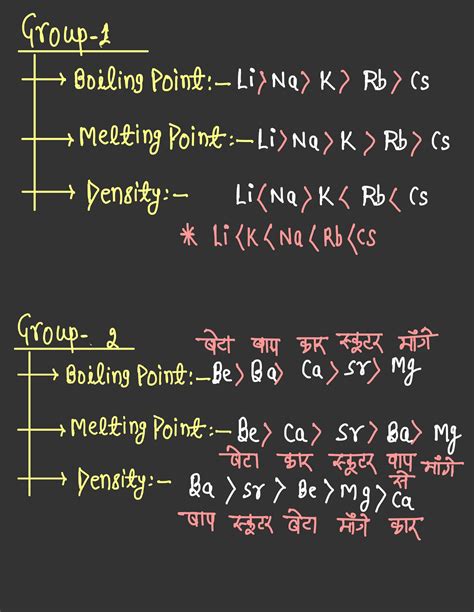 Group-1
→ Boiling Point:- Li > Na > K > Rb > Cs
→ Melting Point:- Li > Na > K > Rb > Cs
→ Density:- Li < Na > K < Rb < Cs
* Li < K < Na < Rb < Cs
Group-2
बेटा बाप कार स्कूटर माँगे
→ Boiling Point:- Be > Ba > Ca > Sr > Mg
→ Melting Point:- Be > Ca > Sr > Ba > Mg
बेटा कार स्कूटर बाप से माँगे
→ Density:- Ba > Sr > Be > Mg > Ca
बाप स्कूटर बेटा माँगे कार